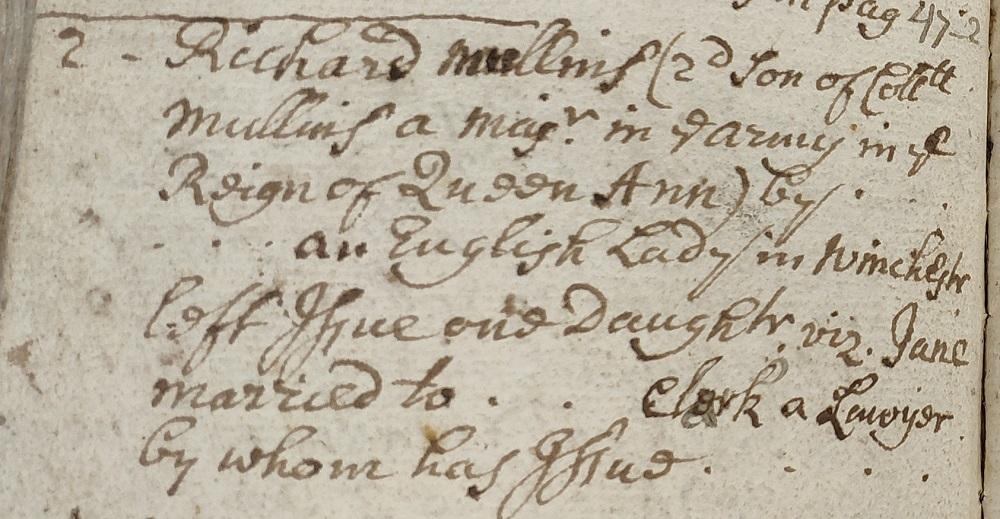 pag 47-2
2 - Richard Mullins (2d Son of Colltt
Mullins a Majr. in ye army in ye
Reign of Queen Ann) by .
. . . an English Lady in Winchestr
left Issue one Daughtr. viz. Jane
married to . . Clerk a Lawyer
by whom has Issue . . . .